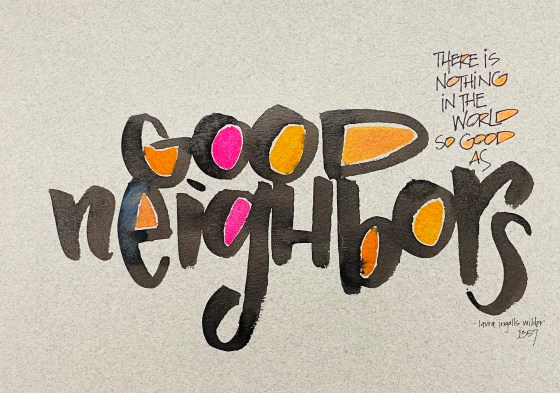 THERE IS
NOTHING
IN THE
WORLD
SO GOOD
AS
GOOD
neigHbors
- laura ingalls wilder
1867